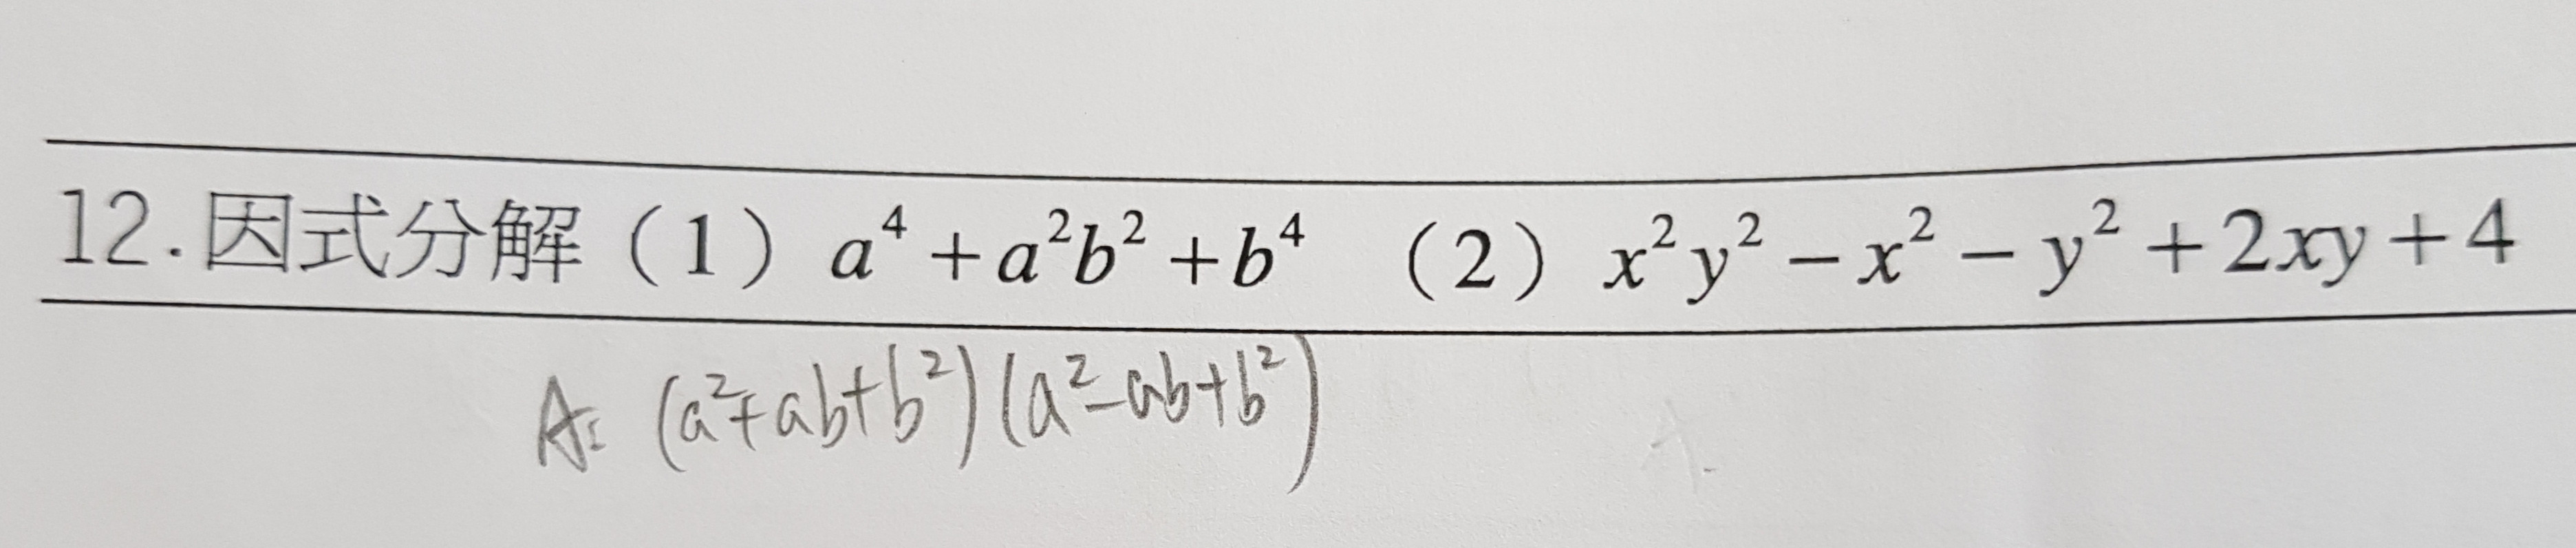 12.因式分解（1）a⁴+a²b²+b⁴ （2）x²y²−x²−y²+2xy+4
A: (a²+ab+b²)(a²−ab+b²)